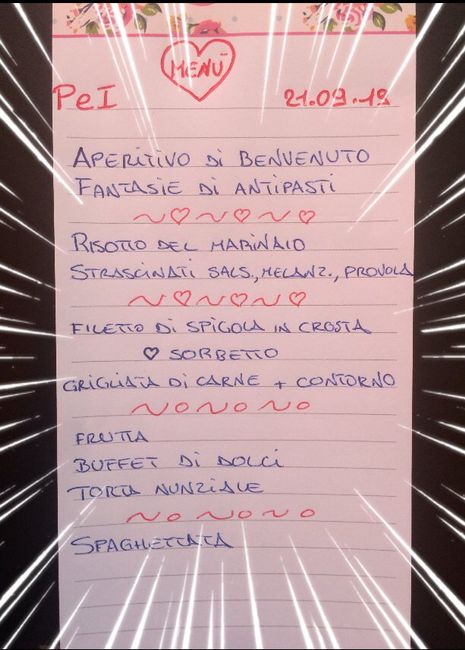 MENÙ
PeI 21.09.19
APERITIVO DI BENVENUTO
FANTASIE DI ANTIPASTI
RISOTTO DEL MARINAIO
STRASCINATI SALS., MELANZ., PROVOLA
FILETTO DI SPIGOLA IN CROSTA
SORBETTO
GRIGLIATA DI CARNE + CONTORNO
FRUTTA
BUFFET DI DOLCI
TORTA NUNZIALE
SPAGHETTATA